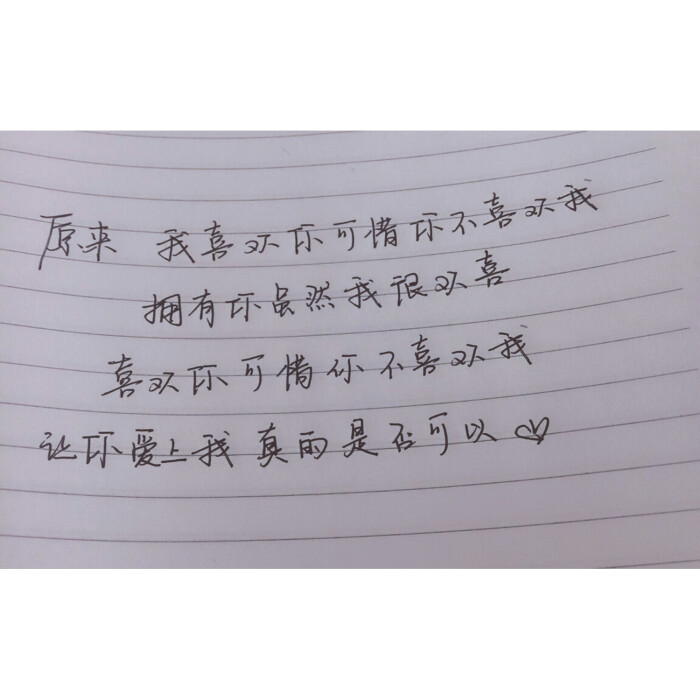 原来 我喜欢你可惜你不喜欢我
拥有你虽然我很欢喜
喜欢你可惜你不喜欢我
让你爱上我 真的是否可以♡